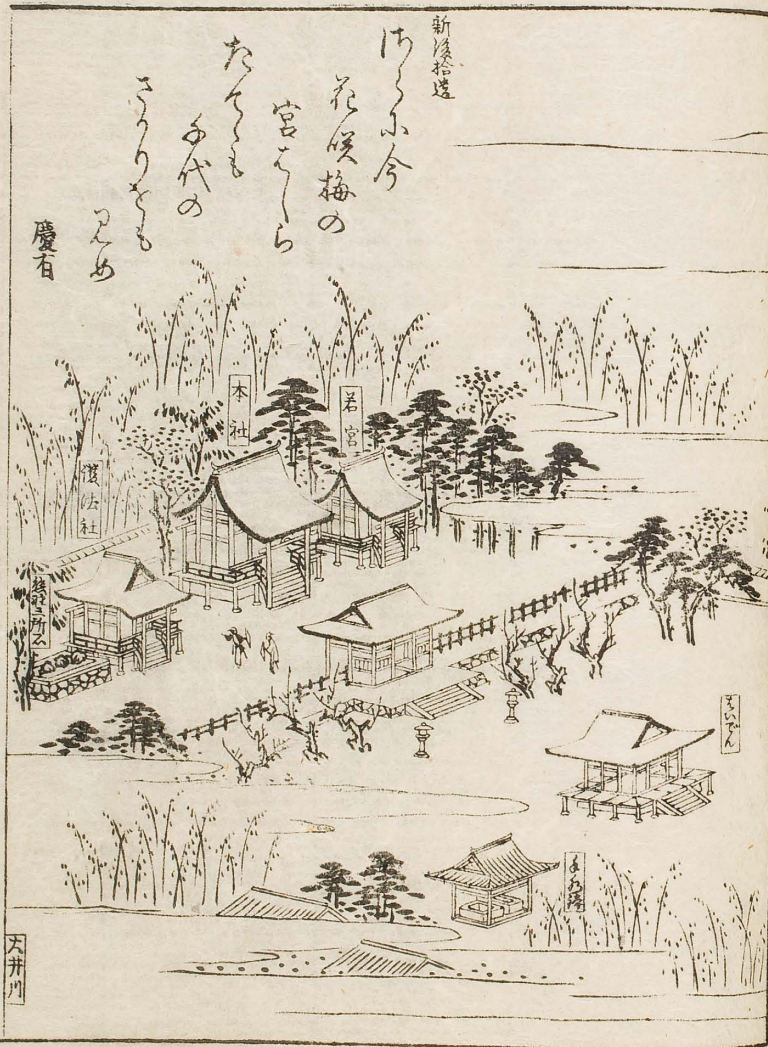 新後拾遺
さらに今
花咲梅の
宮はしら
たてゝも
千代の
さかりをも
みめ
慶有
若宮
本社
護法社
はいでん
大井川